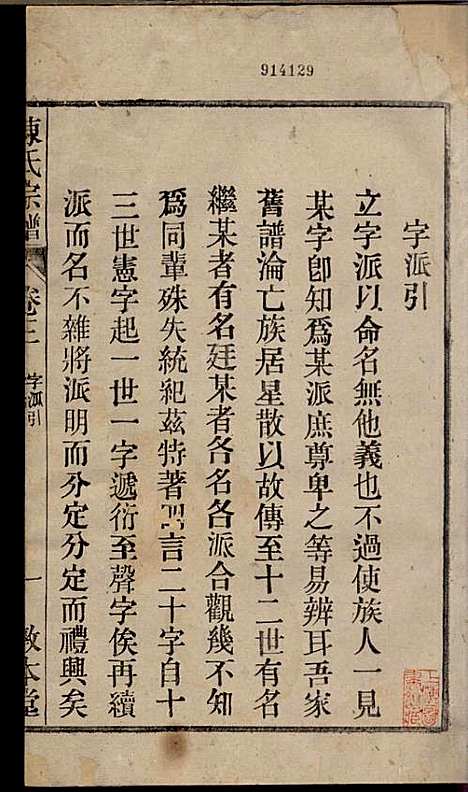 914129
字派引
立字派以命名無他義也不過使族人一見
某字卽知爲某派庶尊卑之等易辨耳吾家
舊譜淪亡族居星散以故傳至十二世有名
繼某者有名廷某者各名各派合觀幾不知
爲同輩殊失統紀茲特著四言二十字自十
三世憲字起一世一字遞衍至聲字俟再續
派而名不雜將派明而分定分定而禮興矣
陳氏宗譜 卷三 字派引 一 敦本堂